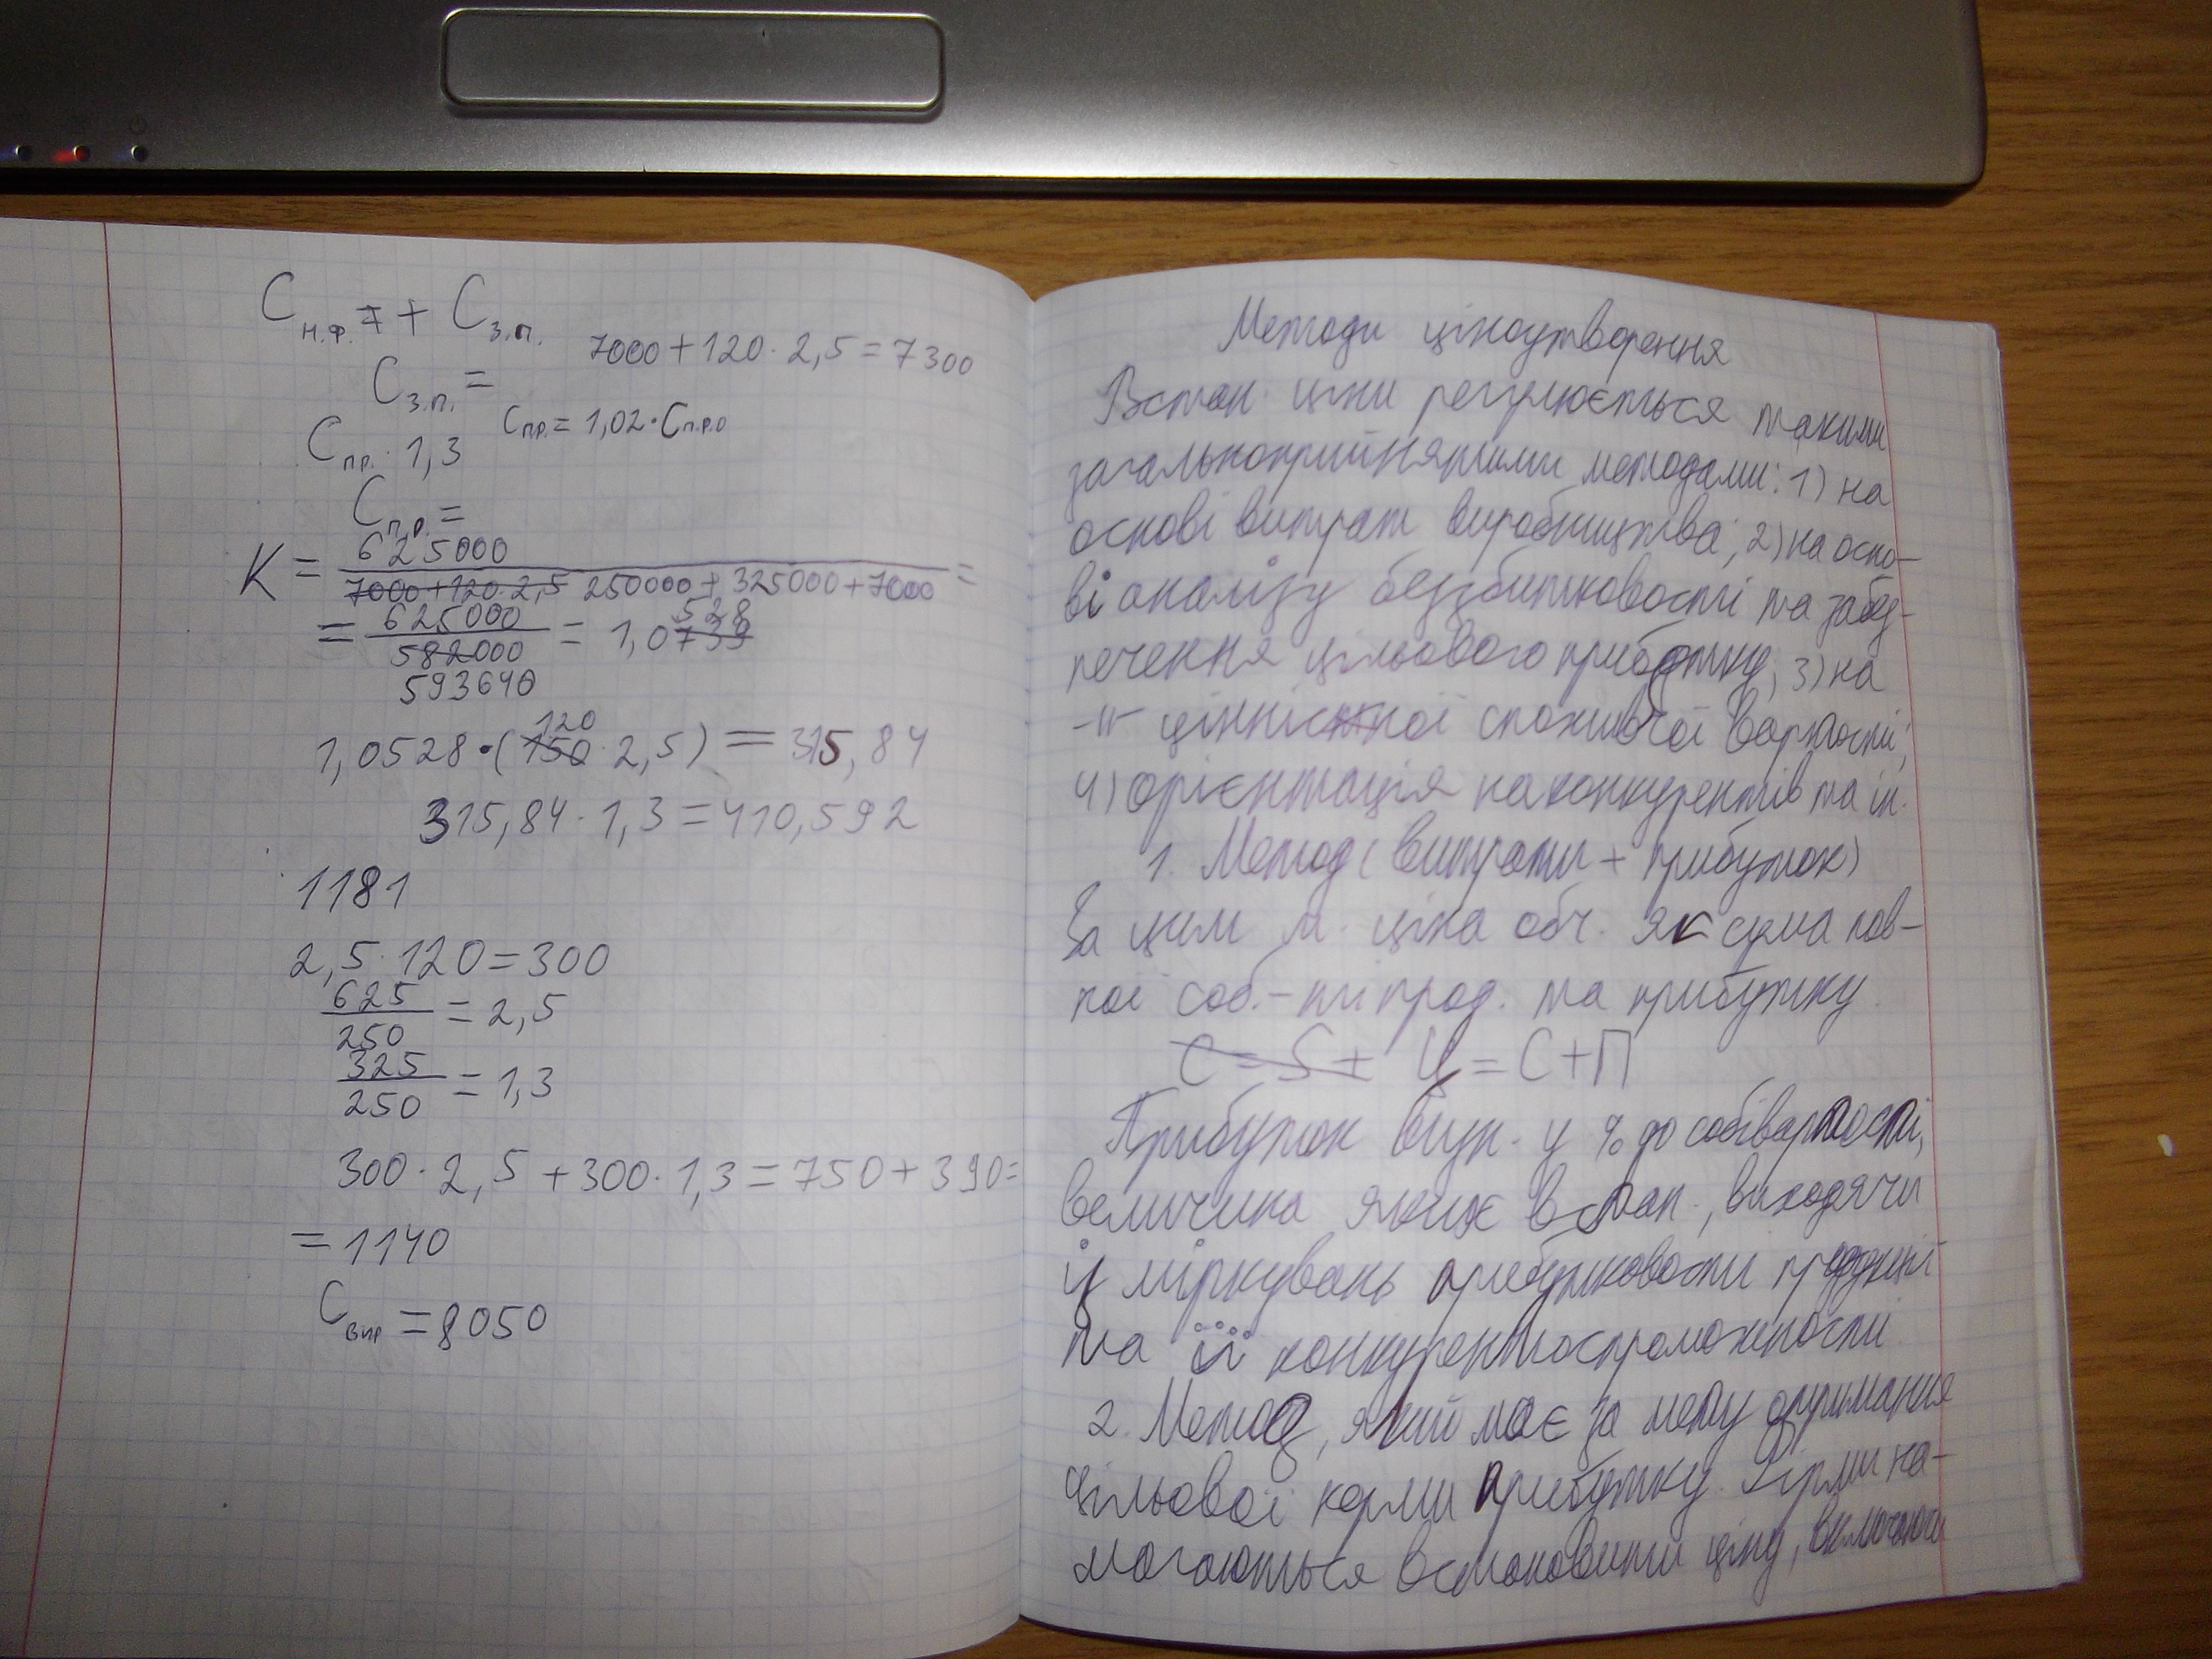 С н.ф. = + С з.п.
7000 + 120 · 2,5 = 7300
С з.п. =
С пр. = 1,02 · С п.р.о
С пр. · 1,3
С пр. =
K = 625000 / 7000 + 120 · 2,5 250000 + 325000 + 7000 =
= 625000 / 582000 593640 = 1,0739 528
1,0528 · (150 120 · 2,5) = 315,84
315,84 · 1,3 = 410,592
1181
2,5 · 120 = 300
625 / 250 = 2,5
325 / 250 = 1,3
300 · 2,5 + 300 · 1,3 = 750 + 390 =
= 1140
С вир = 8050
Методи ціноутворення
Встан. ціни регулюється такими
загальноприйнятими методами: 1) на
основі витрат виробництва; 2) на осно-
ві аналізу беззбитковості та забез-
печення цільового прибутку; 3) на
-||- ціннісної споживчої вартості;
4) орієнтація на конкурентів та ін.
1. Метод (витрати + прибуток)
За цим м. ціна обч. як сума пов-
ної соб.-ті прод. та прибутку.
С = S + Ц = С + П
Прибуток визн. у % до собівартості,
величина яких встан., виходячи
із міркувань прибутковості продукції
та її конкурентоспроможності
2. Метод, який має за мету отримання
цільової норми прибутку. Фірми на-
магаються встановити ціну, включаючи